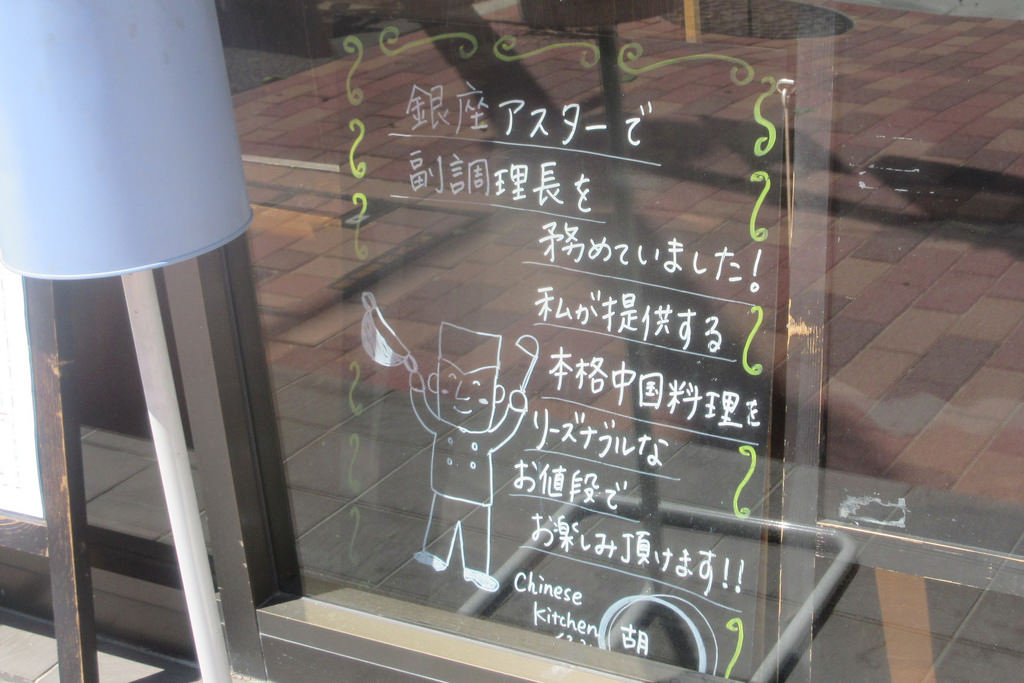 銀座アスターで
副調理長を
務めていました!
私が提供する
本格中国料理を
リーズナブルな
お値段で
お楽しみ頂けます!!
Chinese
Kitchen
胡